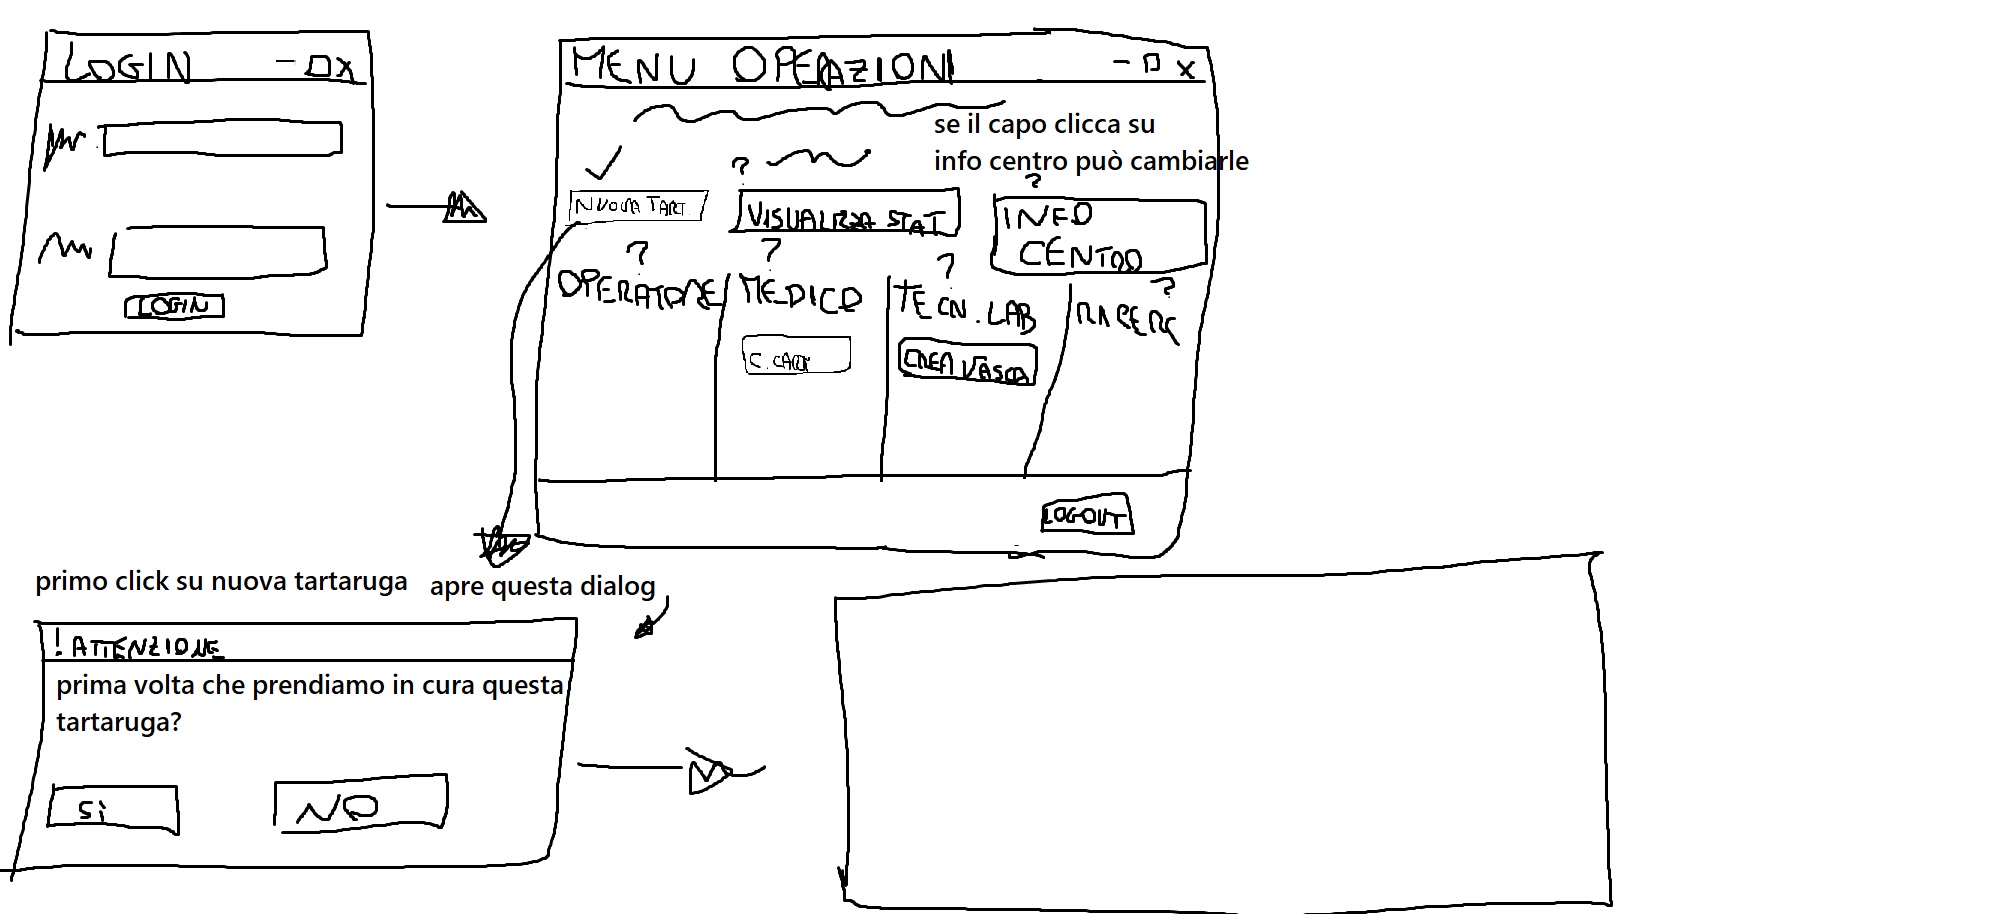 LOGIN
LOGIN
MENU OPERAZIONI
se il capo clicca su
info centro può cambiarle
?
?
NUOVA TART.
VISUALIZZA STAT
INFO
CENTRO
?
?
?
?
OPERATORE
MEDICO
TECN. LAB
RICERC
C. CART
CREA VASCA
LOGOUT
primo click su nuova tartaruga
apre questa dialog
! ATTENZIONE
prima volta che prendiamo in cura questa
tartaruga?
Sì
NO